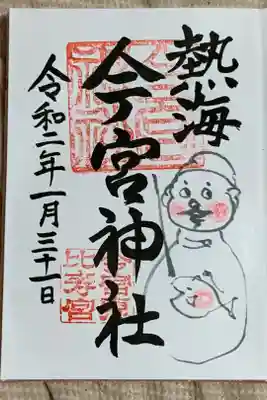 熱海
今宮神社
令和二年一月三十一日
比寿宮